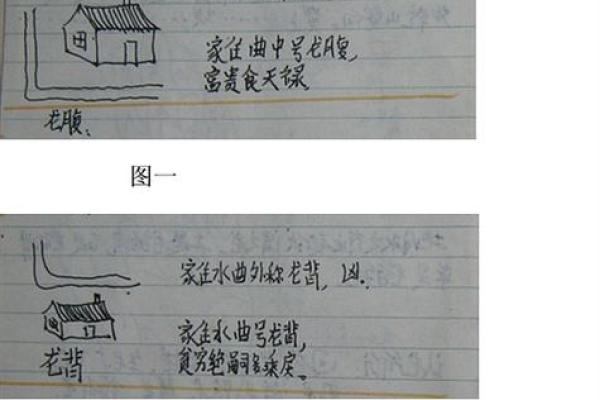 家住曲中号龙腹，
富贵食天禄
龙腹：
图一
家住水曲外称龙背，凶．
家住水曲号龙背，
贫穷绝嗣多乘戾。
龙背